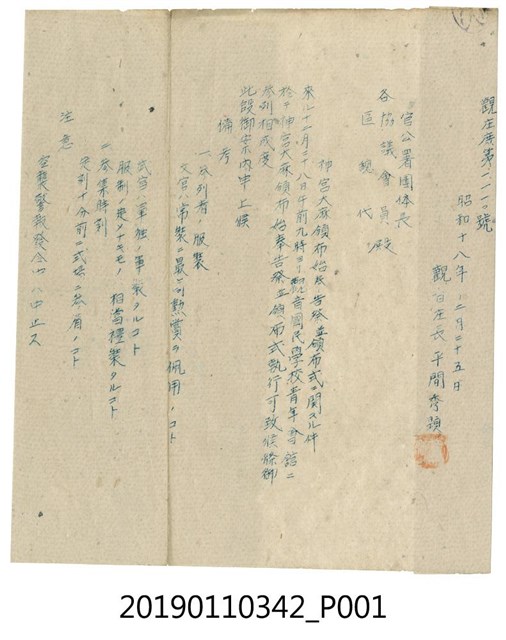 觀庄庶第一一一〇號
昭和十八年 二月二十五日
觀音庄長 平間秀顯
官公署團体長
各協議會員殿
區總代
神宮大麻頒布始 告祭並頒布式ニ関スル件
來ル十二月二十八日午前九時ヨリ觀音國民學校青年會館ニ
於テ神宮大麻頒布始奉告祭並頒布式執行可致候條御
參列相成度
此段御案內申上候
備考
一、參列者ノ服裝
文官ハ常裝ニ最 勲賞ヲ佩用ノコト
武官ハ軍 軍裝タルコト
服制ノ ナキモノハ相當禮裝タルコト
二、參集時刻
定刻十分前ニ式場ニ參 ノコト
注意
空襲警報發令セハ中止ス
20190110342_P001